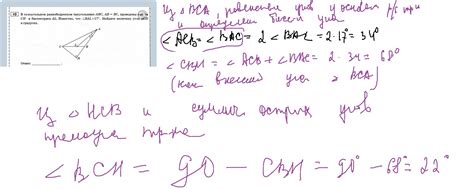 В тупоугольном равнобедренном треугольнике ABC, AB = BC, проведены высота CH и биссектриса AL. Известно, что ∠BAL=17°. Найдите
Ответ:
Из Δ BCA, равенства углов у основ р/б тр-ка
и определения биссектрисы угла
∠ACB = ∠BAC = 2 ∠BAL = 2·17° = 34°
∠CBH = ∠ACB + ∠BAC = 2·34 = 68°
(как внешний угол Δ BCA)
Из Δ HCB и суммы острых углов
прямоуг тр-ка
∠BCH = 90 - CBH = 90° - 68° = 22°